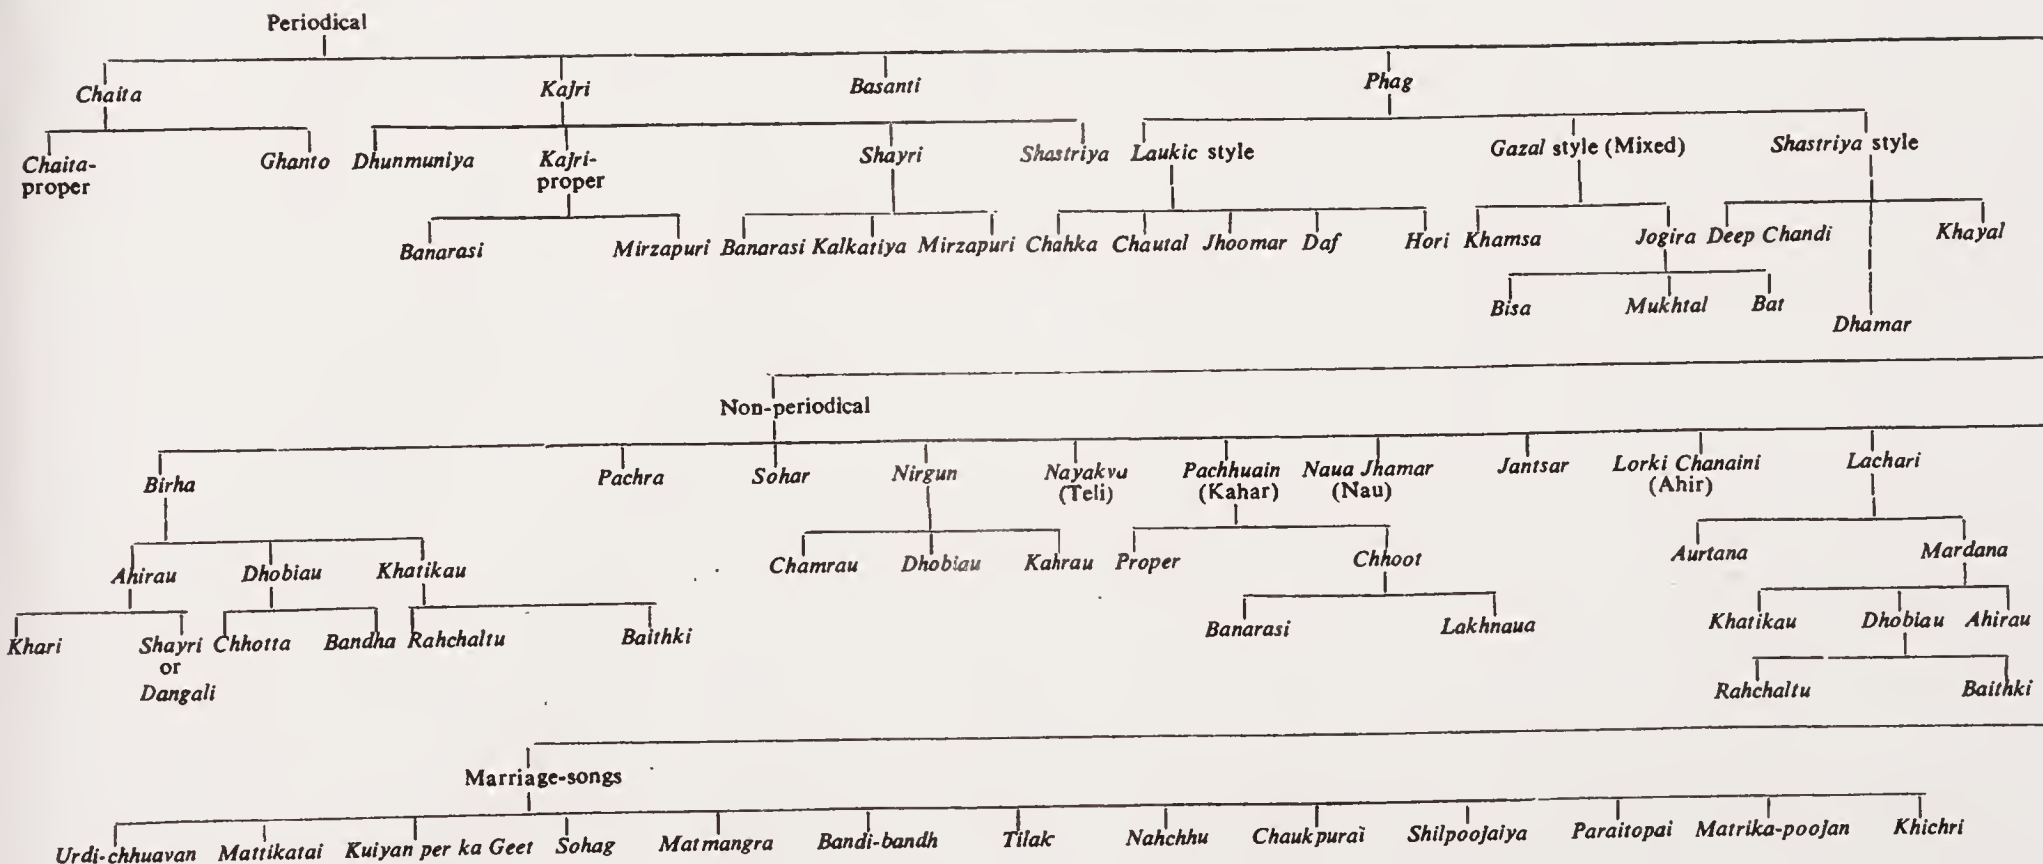 Periodical
Chaita Kajri Basanti Phag
Chaita- Ghanto Dhunmuniya Kajri- Shayri Shastriya Laukic style Gazal style (Mixed) Shastriya style
proper proper
Banarasi Mirzapuri Banarasi Kalkatiya Mirzapuri Chahka Chautal Jhoomar Daf Hori Khamsa Jogira Deep Chandi Khayal
Bisa Mukhtal Bat
Dhamar
Non-periodical
Birha Pachra Sohar Nirgun Nayakva Pachhuain Naua Jhamar Jantsar Lorki Chanaini Lachari
(Teli) (Kahar) (Nau) (Ahir)
Ahirau Dhobiau Khatikau Chamrau Dhobiau Kahrau Proper Chhoot Aurtana Mardana
Khari Shayri Chhotta Bandha Rahchaltu Baithki Banarasi Lakhnaua Khatikau Dhobiau Ahirau
or
Dangali Rahchaltu Baithki
Marriage-songs
Urdi-chhuavan Mattikatai Kuiyan per ka Geet Sohag Matmangra Bandi-bandh Tilak Nahchhu Chaukpurai Shilpoojaiya Paraitopai Matrika-poojan Khichri